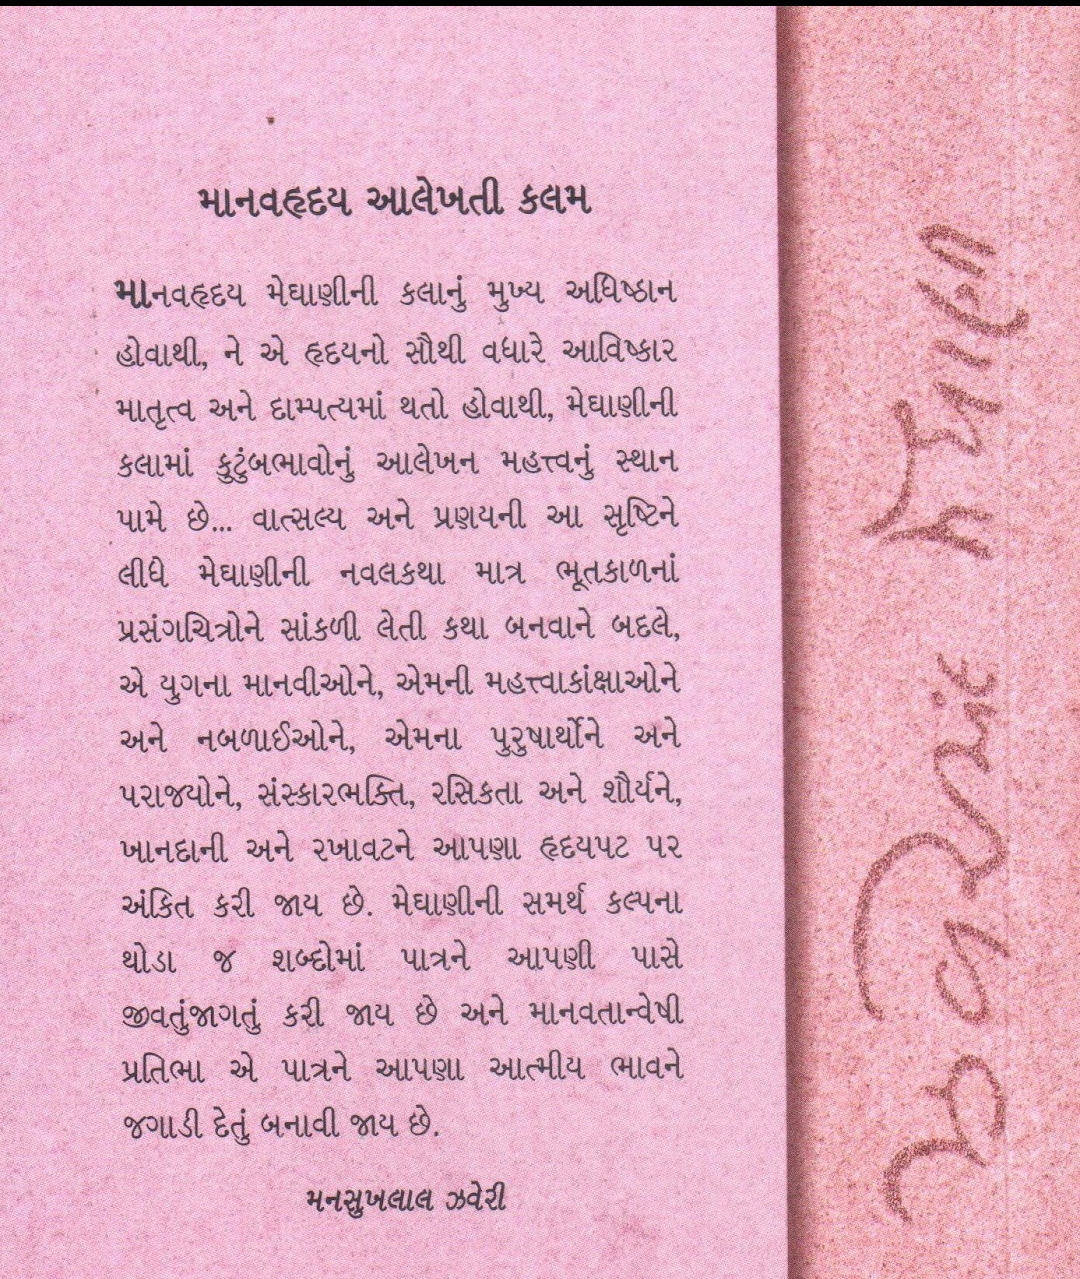 માનવહૃદય આલેખતી કલમ
માનવહૃદય મેઘાણીની કલાનું મુખ્ય અધિષ્ઠાન
હોવાથી, ને એ હૃદયનો સૌથી વધારે આવિષ્કાર
માતૃત્વ અને દામ્પત્યમાં થતો હોવાથી, મેઘાણીની
કલામાં કુટુંબભાવોનું આલેખન મહત્ત્વનું સ્થાન
પામે છે... વાત્સલ્ય અને પ્રણયની આ સૃષ્ટિને
લીધે મેઘાણીની નવલકથા માત્ર ભૂતકાળનાં
પ્રસંગચિત્રોને સાંકળી લેતી કથા બનવાને બદલે,
એ યુગના માનવીઓને, એમની મહત્ત્વાકાંક્ષાઓને
અને નબળાઈઓને, એમના પુરુષાર્થોને અને
પરાજયોને, સંસ્કારભક્તિ, રસિકતા અને શૌર્યને,
ખાનદાની અને રખાવટને આપણા હૃદયપટ પર
અંકિત કરી જાય છે. મેઘાણીની સમર્થ કલ્પના
થોડા જ શબ્દોમાં પાત્રને આપણી પાસે
જીવતુંજાગતું કરી જાય છે અને માનવતાન્વેષી
પ્રતિભા એ પાત્રને આપણા આત્મીય ભાવને
જગાડી દેતું બનાવી જાય છે.
મનસુખલાલ ઝવેરી
ઝવેરચંદ મેઘાણી